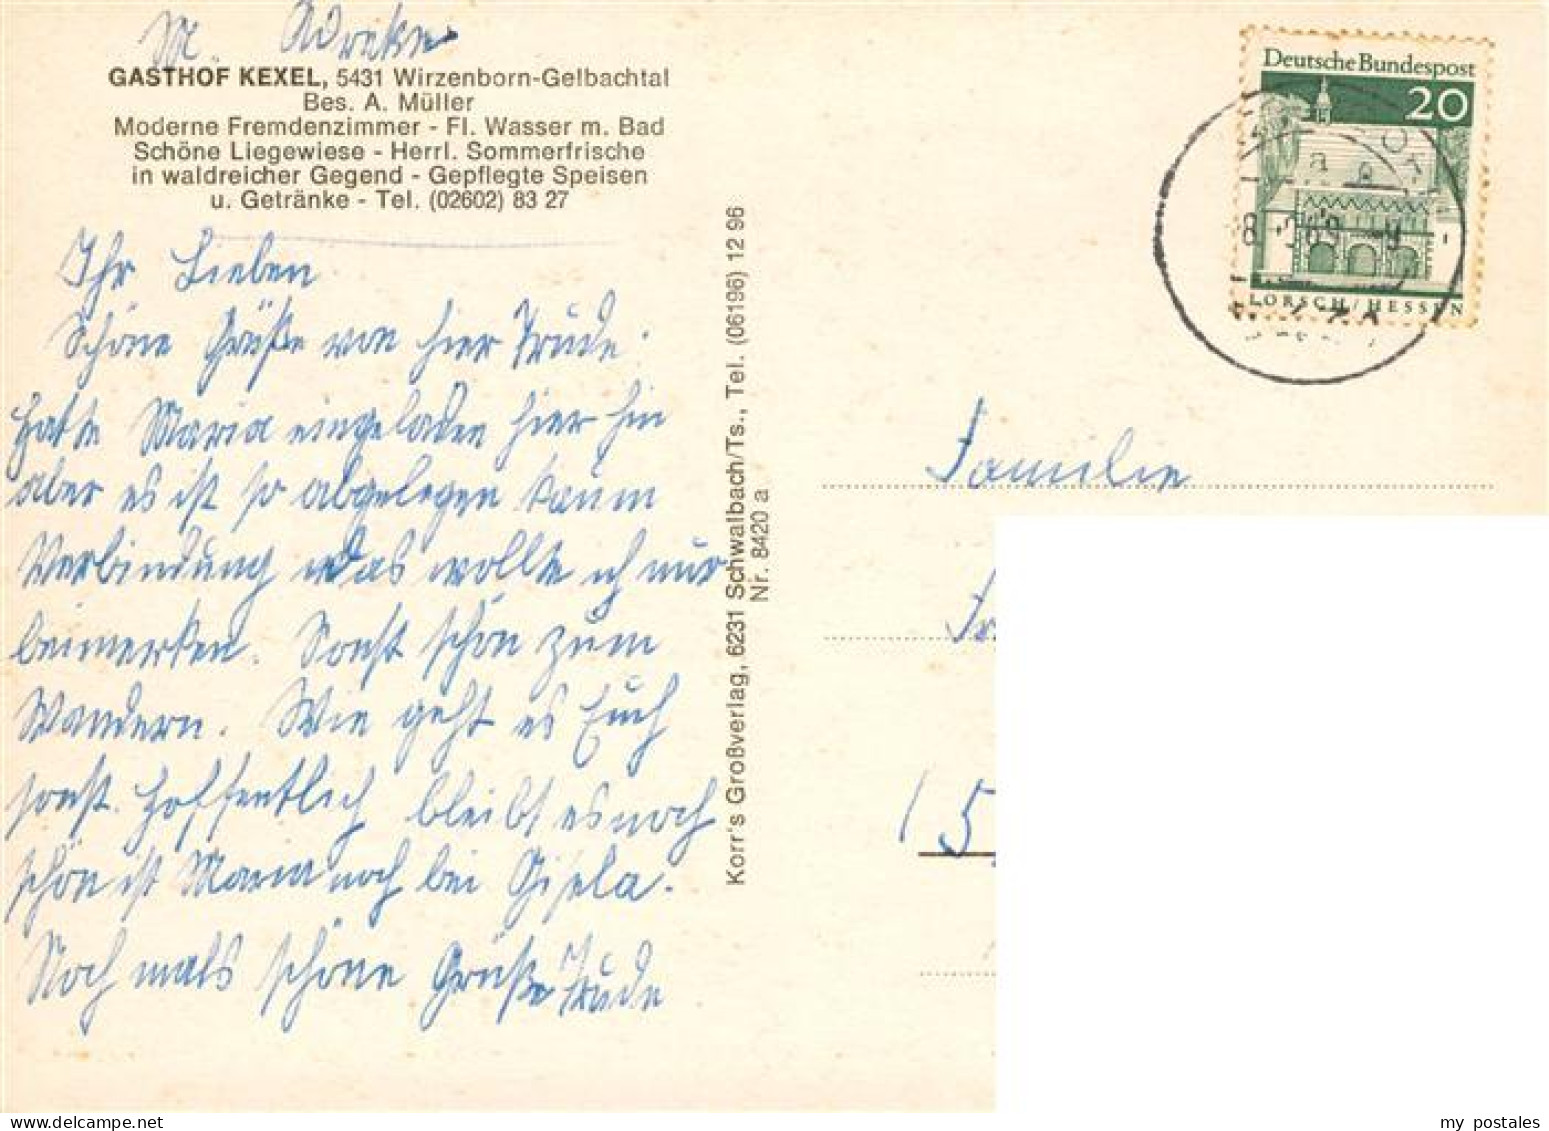 M. Adreke
GASTHOF KEXEL, 5431 Wirzenborn-Gelbachtal
Bes. A. Müller
Moderne Fremdenzimmer - Fl. Wasser m. Bad
Schöne Liegewiese - Herrl. Sommerfrische
in waldreicher Gegend - Gepflegte Speisen
u. Getränke - Tel. (02602) 83 27
Ihr Lieben
Schöne Grüße von hier Trude.
Hatte Maria eingeladen hier hin
aber es ist so abgelegen kaum
Verbindung das wollte ich nur
beimerken. Sonst schön zum
Wandern. Wie geht es Euch
sonst. Hoffentlich bleibt es noch
schön ist Maria noch bei Gisela.
Noch mals schöne Grüße Trude
Korr's Großverlag, 6231 Schwalbach/Ts., Tel. (06196) 12 96
Nr. 8420 a
Deutsche Bundespost
20
LORSCH/HESSEN
Familie
5
my postales